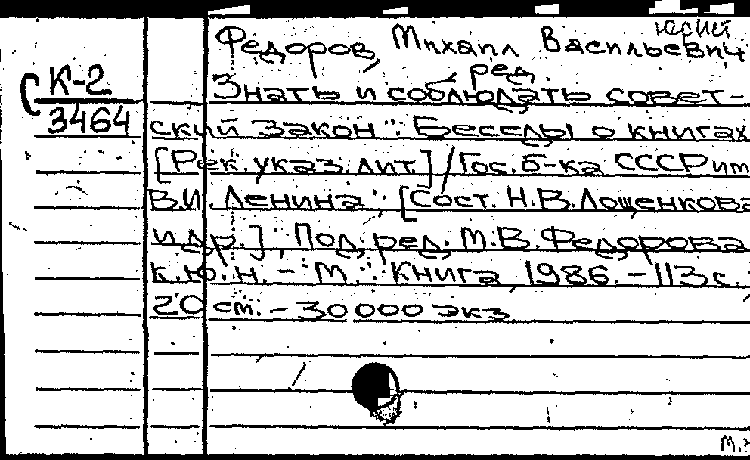 юрист
Федоров, Михаил Васильевич
ред.
К-2
3464
Знать и соблюдать совет-
ский закон : Беседы о книгах
[Рек. указ. лит.] / Гос. б-ка СССР им
В.И. Ленина ; [Сост. Н.В. Лощенкова
и др.] ; Под ред. М.В. Федорова
к.ю.н. - М. : Книга, 1986. - 113 с.
20 см. - 30000 экз